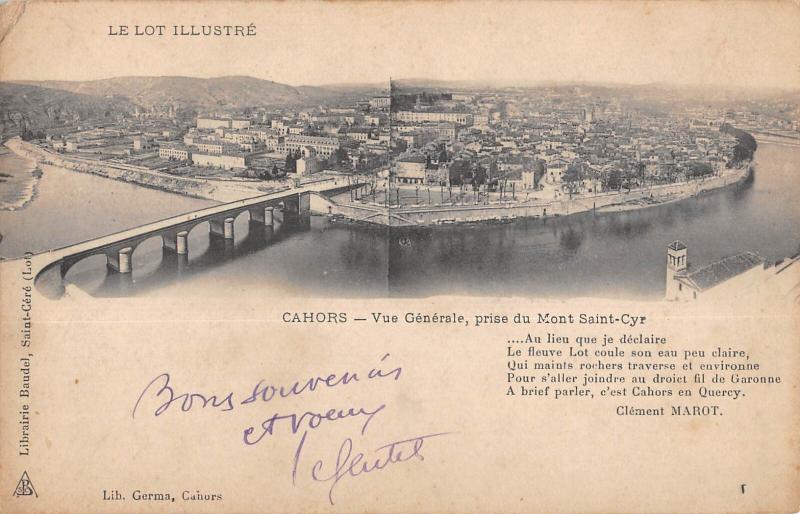 LE LOT ILLUSTRÉ
CAHORS — Vue Générale, prise du Mont Saint-Cyr
....Au lieu que je déclaire
Le fleuve Lot coule son eau peu claire,
Qui maints rochers traverse et environne
Pour s'aller joindre au droict fil de Garonne
A brief parler, c'est Cahors en Quercy.
Clément MAROT.
Bons souvenirs
et voeux
Librairie Baudel, Saint-Céré (Lot)
Lib. Germa, Cahors